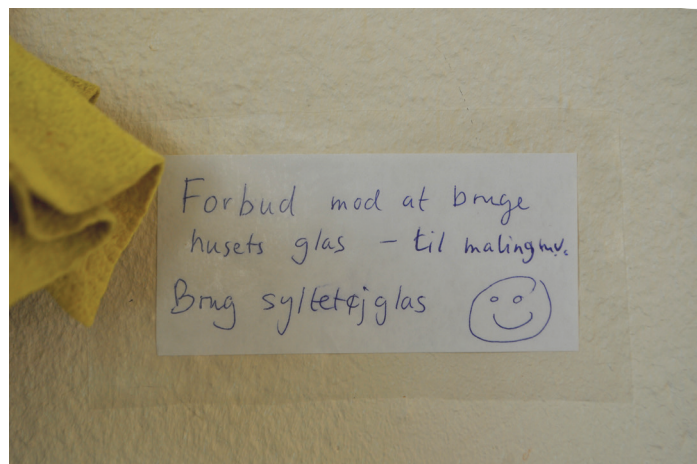 Forbud mod at bruge
husets glas – til maling m.v.
Brug syltetøjglas